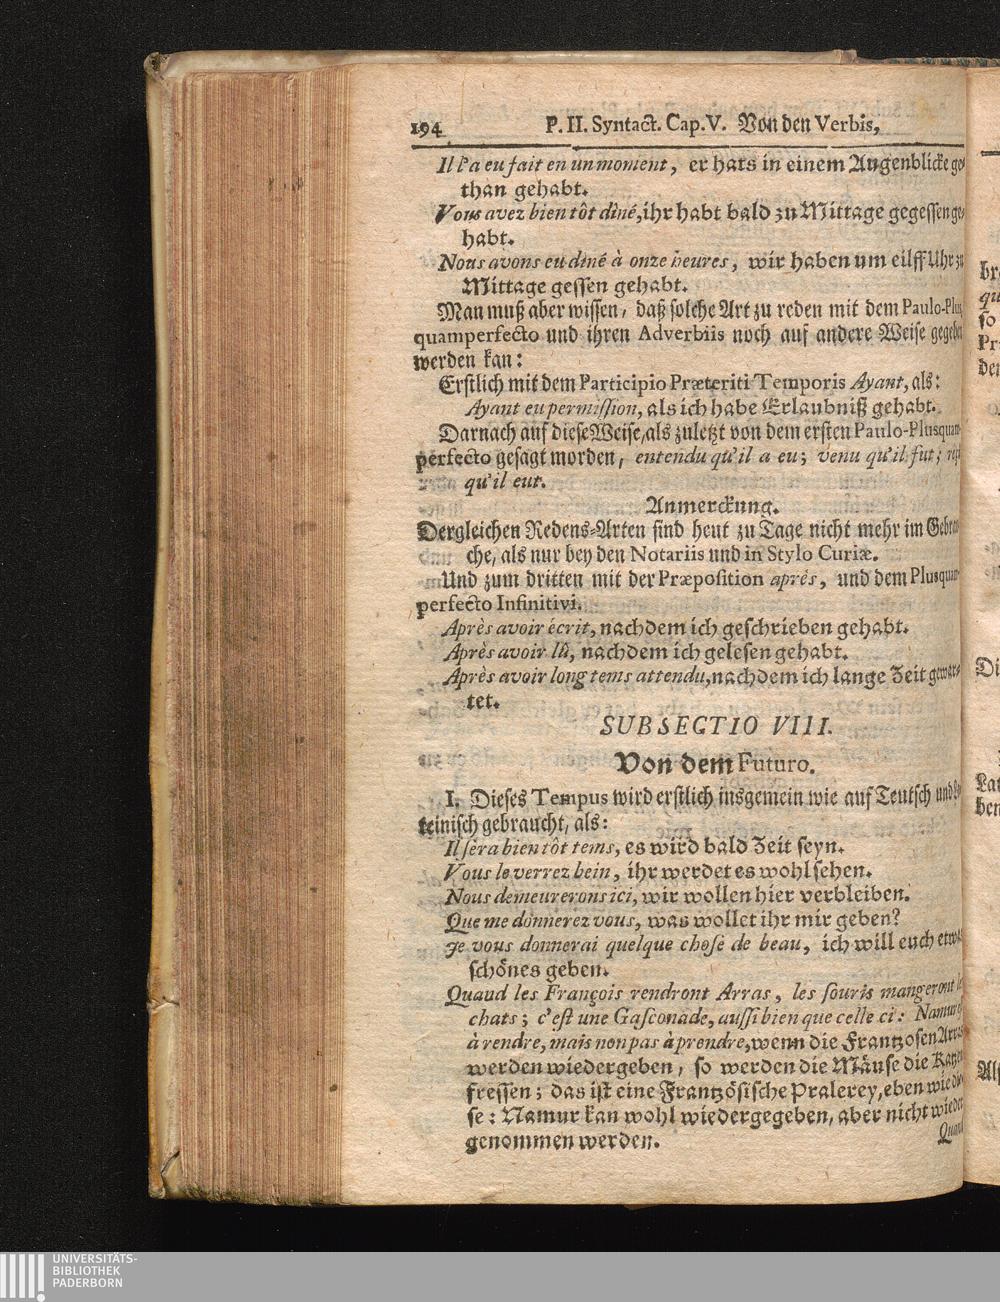 194 P. II. Syntact. Cap. V. Von den Verbis,
Il l'a eu fait en un moment, er hats in einem Augenblicke ge-
than gehabt.
Vous avez bien tôt diné, ihr habt bald zu Mittage gegessen ge-
habt.
Nous avons eu diné à onze heures, wir haben um eilff Uhr zu
Mittage gessen gehabt.
Man muß aber wissen, daß solche Art zu reden mit dem Paulo-Plus-
quamperfecto und ihren Adverbiis noch auf andere Weise gegeben
werden kan:
Erstlich mit dem Participio Præteriti Temporis Ayant, als:
Ayant eu permission, als ich habe Erlaubniß gehabt.
Darnach auf diese Weise, als zuletzt von dem ersten Paulo-Plusquam-
perfecto gesagt worden, entendu qu'il a eu; venu qu'il fut;
qu'il eut.
Anmerckung.
Dergleichen Redens-Arten sind heut zu Tage nicht mehr im Gebrau-
che, als nur bey den Notariis und in Stylo Curiæ.
Und zum dritten mit der Præposition après, und dem Plusquam-
perfecto Infinitivi.
Après avoir écrit, nachdem ich geschrieben gehabt.
Après avoir lû, nachdem ich gelesen gehabt.
Après avoir long tems attendu, nachdem ich lange Zeit gewar-
tet.
SUBSECTIO VIII.
Von dem Futuro.
I. Dieses Tempus wird erstlich insgemein wie auf Teutsch und La-
teinisch gebraucht, als:
Il sera bien tôt tems, es wird bald Zeit seyn.
Vous le verrez bein, ihr werdet es wohl sehen.
Nous demeurerons ici, wir wollen hier verbleiben.
Que me donnerez vous, was wollet ihr mir geben?
Je vous donnerai quelque chose de beau, ich will euch etwas
schönes geben.
Quand les François rendront Arras, les souris mangeront les
chats; c'est une Gasconade, aussi bien que celle ci: Namur
à rendre, mais non pas à prendre, wenn die Frantzosen Arras
werden wiedergeben, so werden die Mäuse die Katzen
fressen; das ist eine Frantzösische Pralerey, eben wie die-
se: Namur kan wohl wiedergegeben, aber nicht wieder
genommen werden.
Quand
UNIVERSITÄTS-
BIBLIOTHEK
PADERBORN